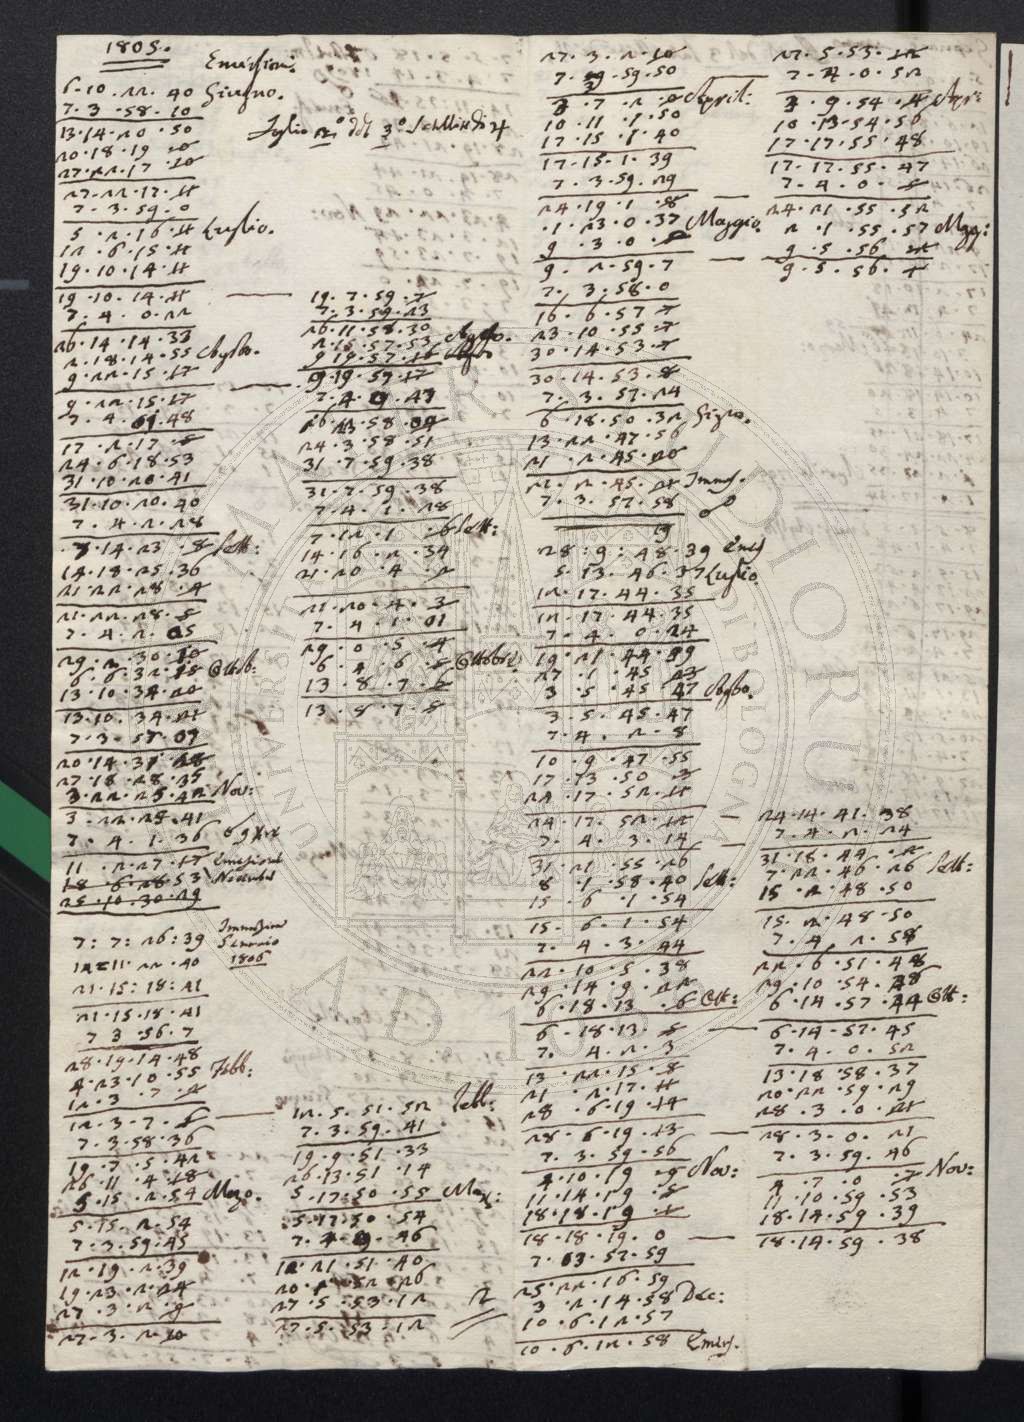 1805.
Emersioni
6.10.22.40 Giugno.
7.3.58.10
13.14.20.50
20.18.19.0
27.22.17.10
Foglio 2° del 3° Satellite di ♃
27.22.17.11
7.3.59.0
5.2.16.11 Luglio.
12.6.15.11
19.10.14.11
19.10.14.11
7.4.0.22
26.14.14.33
2.18.14.55 Agosto.
9.22.15.17
9.22.15.17
7.4.01.48
17.2.17.5
24.6.18.53
31.10.20.41
31.10.20.40
7.4.2.28
7.14.23.8 Sett:
14.18.25.36
21.22.28.4
21.22.28.5
7.4.2.05
29.2.30.10
6.6.32.18 Ottob:
13.10.34.20
13.10.34.21
7.3.57.07
20.14.31.28
27.18.28.35
3.22.25.42 Nov:
3.22.25.41
7.4.1.36
11.2.27.17 Emersioni
18.6.28.53 Novembre
25.10.30.29
7:7:26:39 Immersioni
12:11.22.40 Gennaio
21.15:18:21 1806
21.15.18.21
7 3.56.7
28.19.14.48
4.23.10.55 Febb:
12.3.7.2
12.3.7.5
7.3.58.36
19.7.5.42
26.11.4.18
5.15.2.54 Marzo.
5.15.2.54
7.3.59.45
12.19.2.39
19.23.2.24
27.3.2.9
27.3.2.10
19.7.59.7
7.3.59.23
26.11.58.30
2.15.57.53 Agosto.
9.19.57.16
9.19.59.17
7.4.0.47
24.3.58.51
31.7.59.38
31.7.59.38
7.4.1.28
7.12.1.6 Sett:
14.16.2.34
21.20.4.2
21.20.4.3
7.4.1.01
29.0.5.4
6.4.6.5 Ottobre
13.8.7.6
13.8.7.5
12.5.51.52 Febb:
7.3.59.41
19.9.51.33
26.13.51.14
5.17.50.55 Marz:
5.17.50.54
7.4.0.46
12.21.51.40
27.5.53.12
27.5.53.12
27.3.2.10
7.3.59.50
3.7.2.0 April:
10.11.1.50
17.15.1.40
17.15.1.39
7.3.59.29
24.19.1.8
1.23.0.37 Maggio.
9.3.0.5
9.2.59.7
7.3.58.0
16.6.57.7
23.10.55.7
30.14.53.7
30.14.53.8
7.3.57.24
6.18.50.32 Giugno.
13.22.47.56
21.2.45.20
21.2.45.21 Immers.
7.3.57.58
28:9:48.39 Emers
5.13.46.37 Luglio.
12.17.44.35
12.17.44.35
7.4.0.24
27.1.45.23
3.5.45.47 Agosto.
3.5.45.47
7.4.2.8
10.9.47.55
17.13.50.3
24.17.52.11
24.17.52.12
7.4.3.14
31.21.55.26
8.1.58.40 Sett:
15.6.1.54
15.6.1.54
7.4.3.44
22.10.5.38
29.14.9.22
6.18.13.6 Ott:
6.18.13.5
7.4.2.3
13.22.15.8
21.2.17.11
28.6.19.14
28.6.19.13
7.3.59.56
4.10.19.9 Nov:
11.14.19.5
18.18.19.1
18.18.19.0
7.03.57.59
25.22.16.59
3.2.14.58 Dec:
10.6.12.57
10.6.12.58 Emers.
27.5.53.12
7.4.0.52
3.9.54.4 Apr:
10.13.54.56
17.17.55.48
17.17.55.47
7.4.0.5
24.21.55.52
2.1.55.57 Magg:
9.5.56.2
9.5.56.1
24.14.41.38
7.4.2.24
31.18.44.2
7.22.46.26 Sett:
15.2.48.50
15.2.48.50
7.4.2.58
22.6.51.48
29.10.54.46
6.14.57.44 Ott:
6.14.57.45
7.4.0.52
13.18.58.37
20.22.59.29
28.3.0.21
28.3.0.21
7.3.59.46
4.7.0.7 Nov:
11.10.59.53
18.14.59.39
18.14.59.38